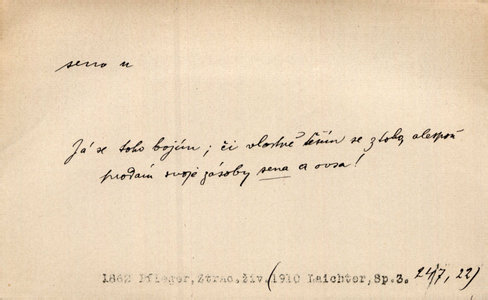 seno n
Já se toho bojím; či vlastně těším se z toho, alespoň
prodám svoje zásoby sena a ovsa!
1862 Pfleger, Ztrac.živ.(1910 Laichter, Sp.3. 24/7, 22)